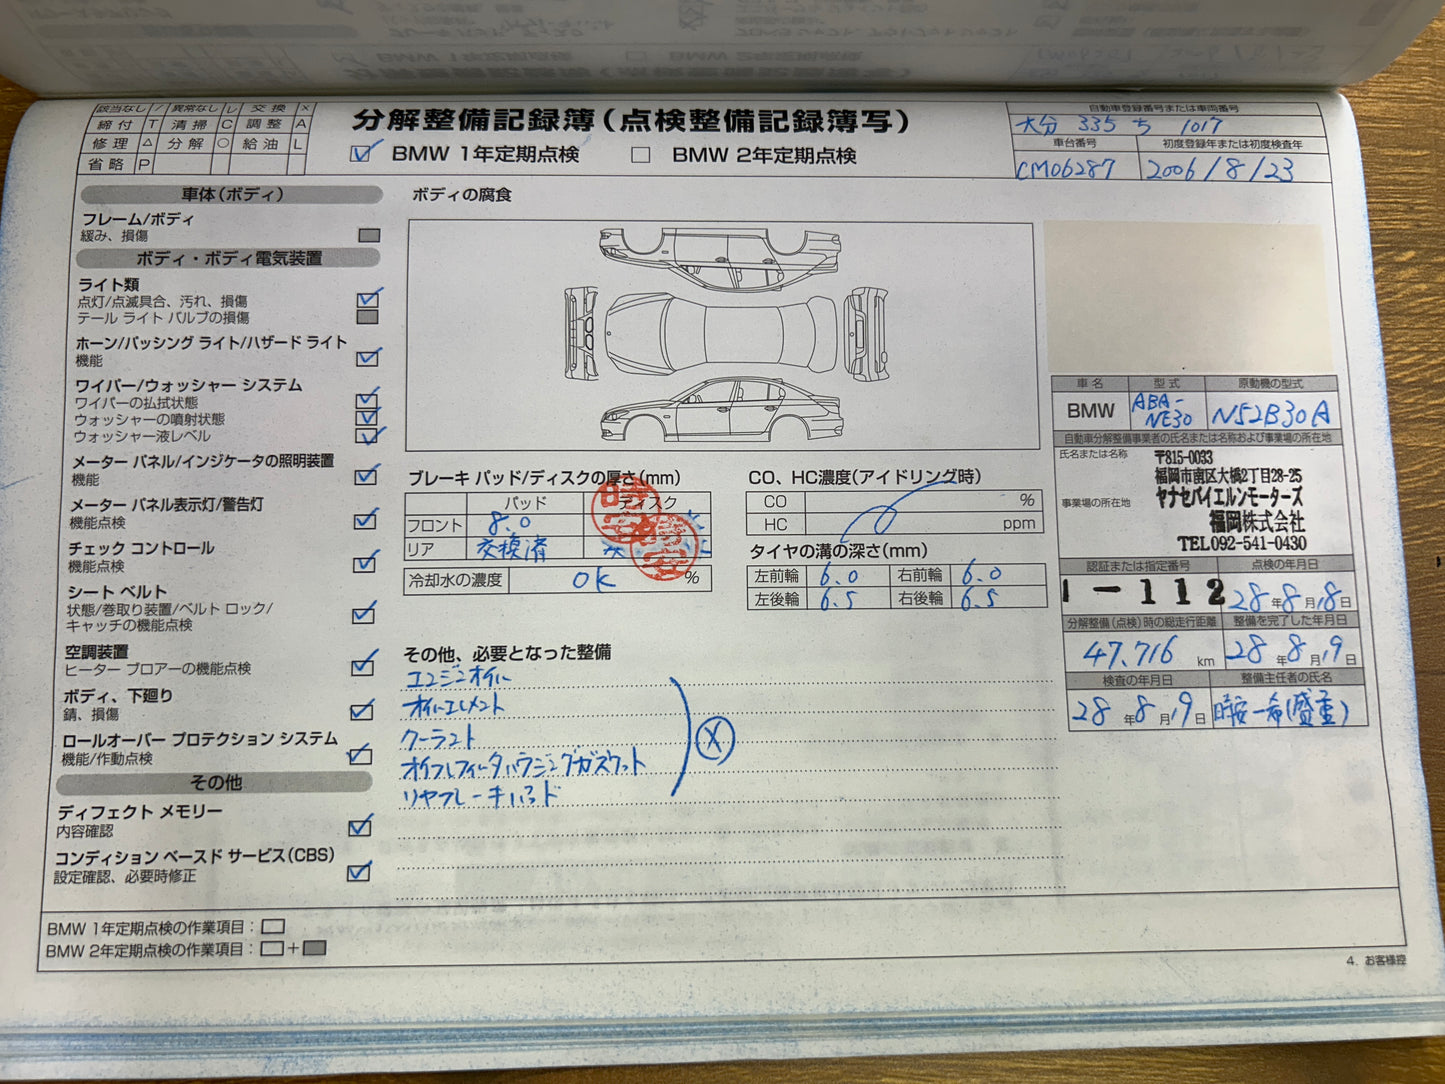 該当なし / 異常なし レ 交換 ×
締付 T 清掃 C 調整 A
修理 △ 分解 ○ 給油 L
省略 P
分解整備記録簿(点検整備記録簿写)
☑ BMW 1年定期点検 □ BMW 2年定期点検
自動車登録番号または車両番号
大分 335 ち 1017
車台番号 初度登録年または初度検査年
CM06287 2006/8/23
車体(ボディ)
フレーム/ボディ
緩み、損傷
ボディ・ボディ電気装置
ライト類
点灯/点滅具合、汚れ、損傷
テール ライト バルブの損傷
ホーン/パッシング ライト/ハザード ライト
機能
ワイパー/ウォッシャー システム
ワイパーの払拭状態
ウォッシャーの噴射状態
ウォッシャー液レベル
メーター パネル/インジケータの照明装置
機能
メーター パネル表示灯/警告灯
機能点検
チェック コントロール
機能点検
シート ベルト
状態/巻取り装置/ベルト ロック/
キャッチの機能点検
空調装置
ヒーター ブロアーの機能点検
ボディ、下廻り
錆、損傷
ロールオーバー プロテクション システム
機能/作動点検
その他
ディフェクト メモリー
内容確認
コンディション ベースド サービス(CBS)
設定確認、必要時修正
ボディの腐食
ブレーキ パッド/ディスクの厚さ(mm)
パッド ディスク
フロント 8.0
リア 交換済
冷却水の濃度 OK %
CO、HC濃度(アイドリング時)
CO %
HC ppm
タイヤの溝の深さ(mm)
左前輪 6.0 右前輪 6.0
左後輪 6.5 右後輪 6.5
その他、必要となった整備
エンジンオイル
オイルエレメント
クーラント
オイルフィルータハウジングガスケット
リヤブレーキパッド
Ⓧ
車名 型式 原動機の型式
BMW ABA-NE30 N52B30A
自動車分解整備事業者の氏名または名称および事業場の所在地
氏名または名称
事業場の所在地
〒815-0033
福岡市南区大橋2丁目28-25
ヤナセバイエルンモーターズ
福岡株式会社
TEL092-541-0430
認証または指定番号 点検の年月日
1-112 28年8月18日
分解整備(点検)時の総走行距離 整備を完了した年月日
47,716 km 28年8月19日
検査の年月日 整備主任者の氏名
28年8月19日
BMW 1年定期点検の作業項目:□
BMW 2年定期点検の作業項目:□+■
4. お客様控